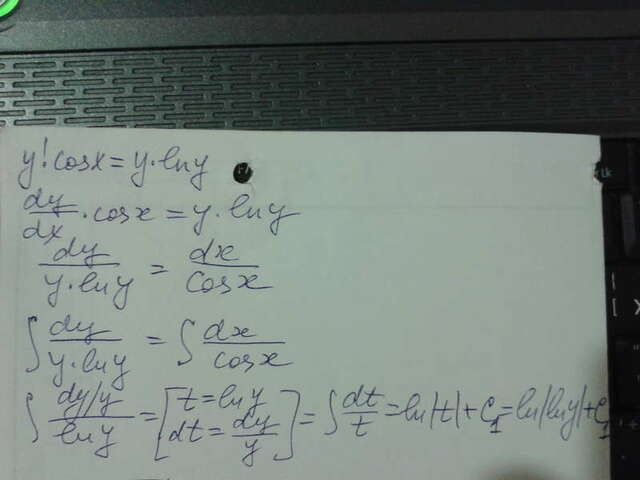 y'·cosx = y·lny
dy/dx · cosx = y·lny
dy/(y·lny) = dx/cosx
∫ dy/(y·lny) = ∫ dx/cosx
∫ (dy/y)/lny = [t = lny, dt = dy/y] = ∫ dt/t = ln|t| + C₁ = ln|lny| + C₁